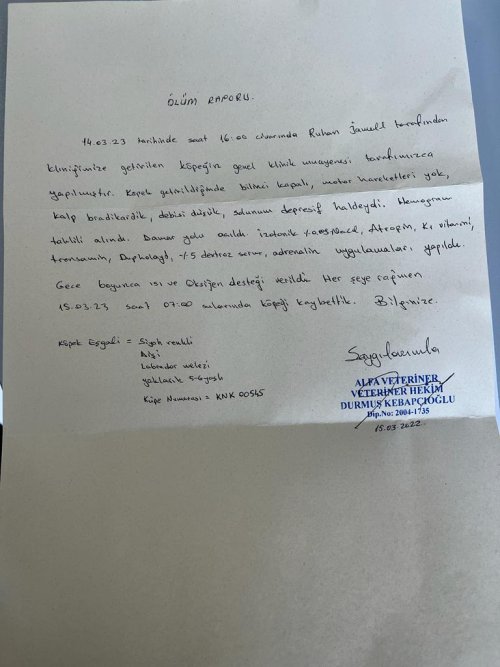 ÖLÜM RAPORU.
14.03.23 tarihinde saat 16:00 civarında Ruhan tarafından
kliniğimize getirilen köpeğin genel klinik muayenesi tarafımızca
yapılmıştır. Köpek getirildiğinde bilinci kapalı, motor hareketleri yok,
kalp bradikardik, debisi düşük, solunum depresif haldeydi. Hemogram
tahlili alındı. Damar yolu açıldı. İzotonik Atropin, K1 vitamini,
transamin, Duphalayt, %5 dextroz serum, adrenalin uygulamaları yapıldı.
Gece boyunca ısı ve Oksijen desteği verildi. Her şeye rağmen
15.03.23 saat 07:00 sularında köpeği kaybettik. Bilginize.
Köpek Eşgali = Siyah renkli
Dişi
Labrador melezi
yaklaşık 5-6 yaşlı
Küpe Numarası = KNK 00545
Saygılarımla
ALFA VETERİNER
VETERİNER HEKİM
DURMUŞ KEBAPÇIOĞLU
Dip.No: 2004-1735
15.03.2022